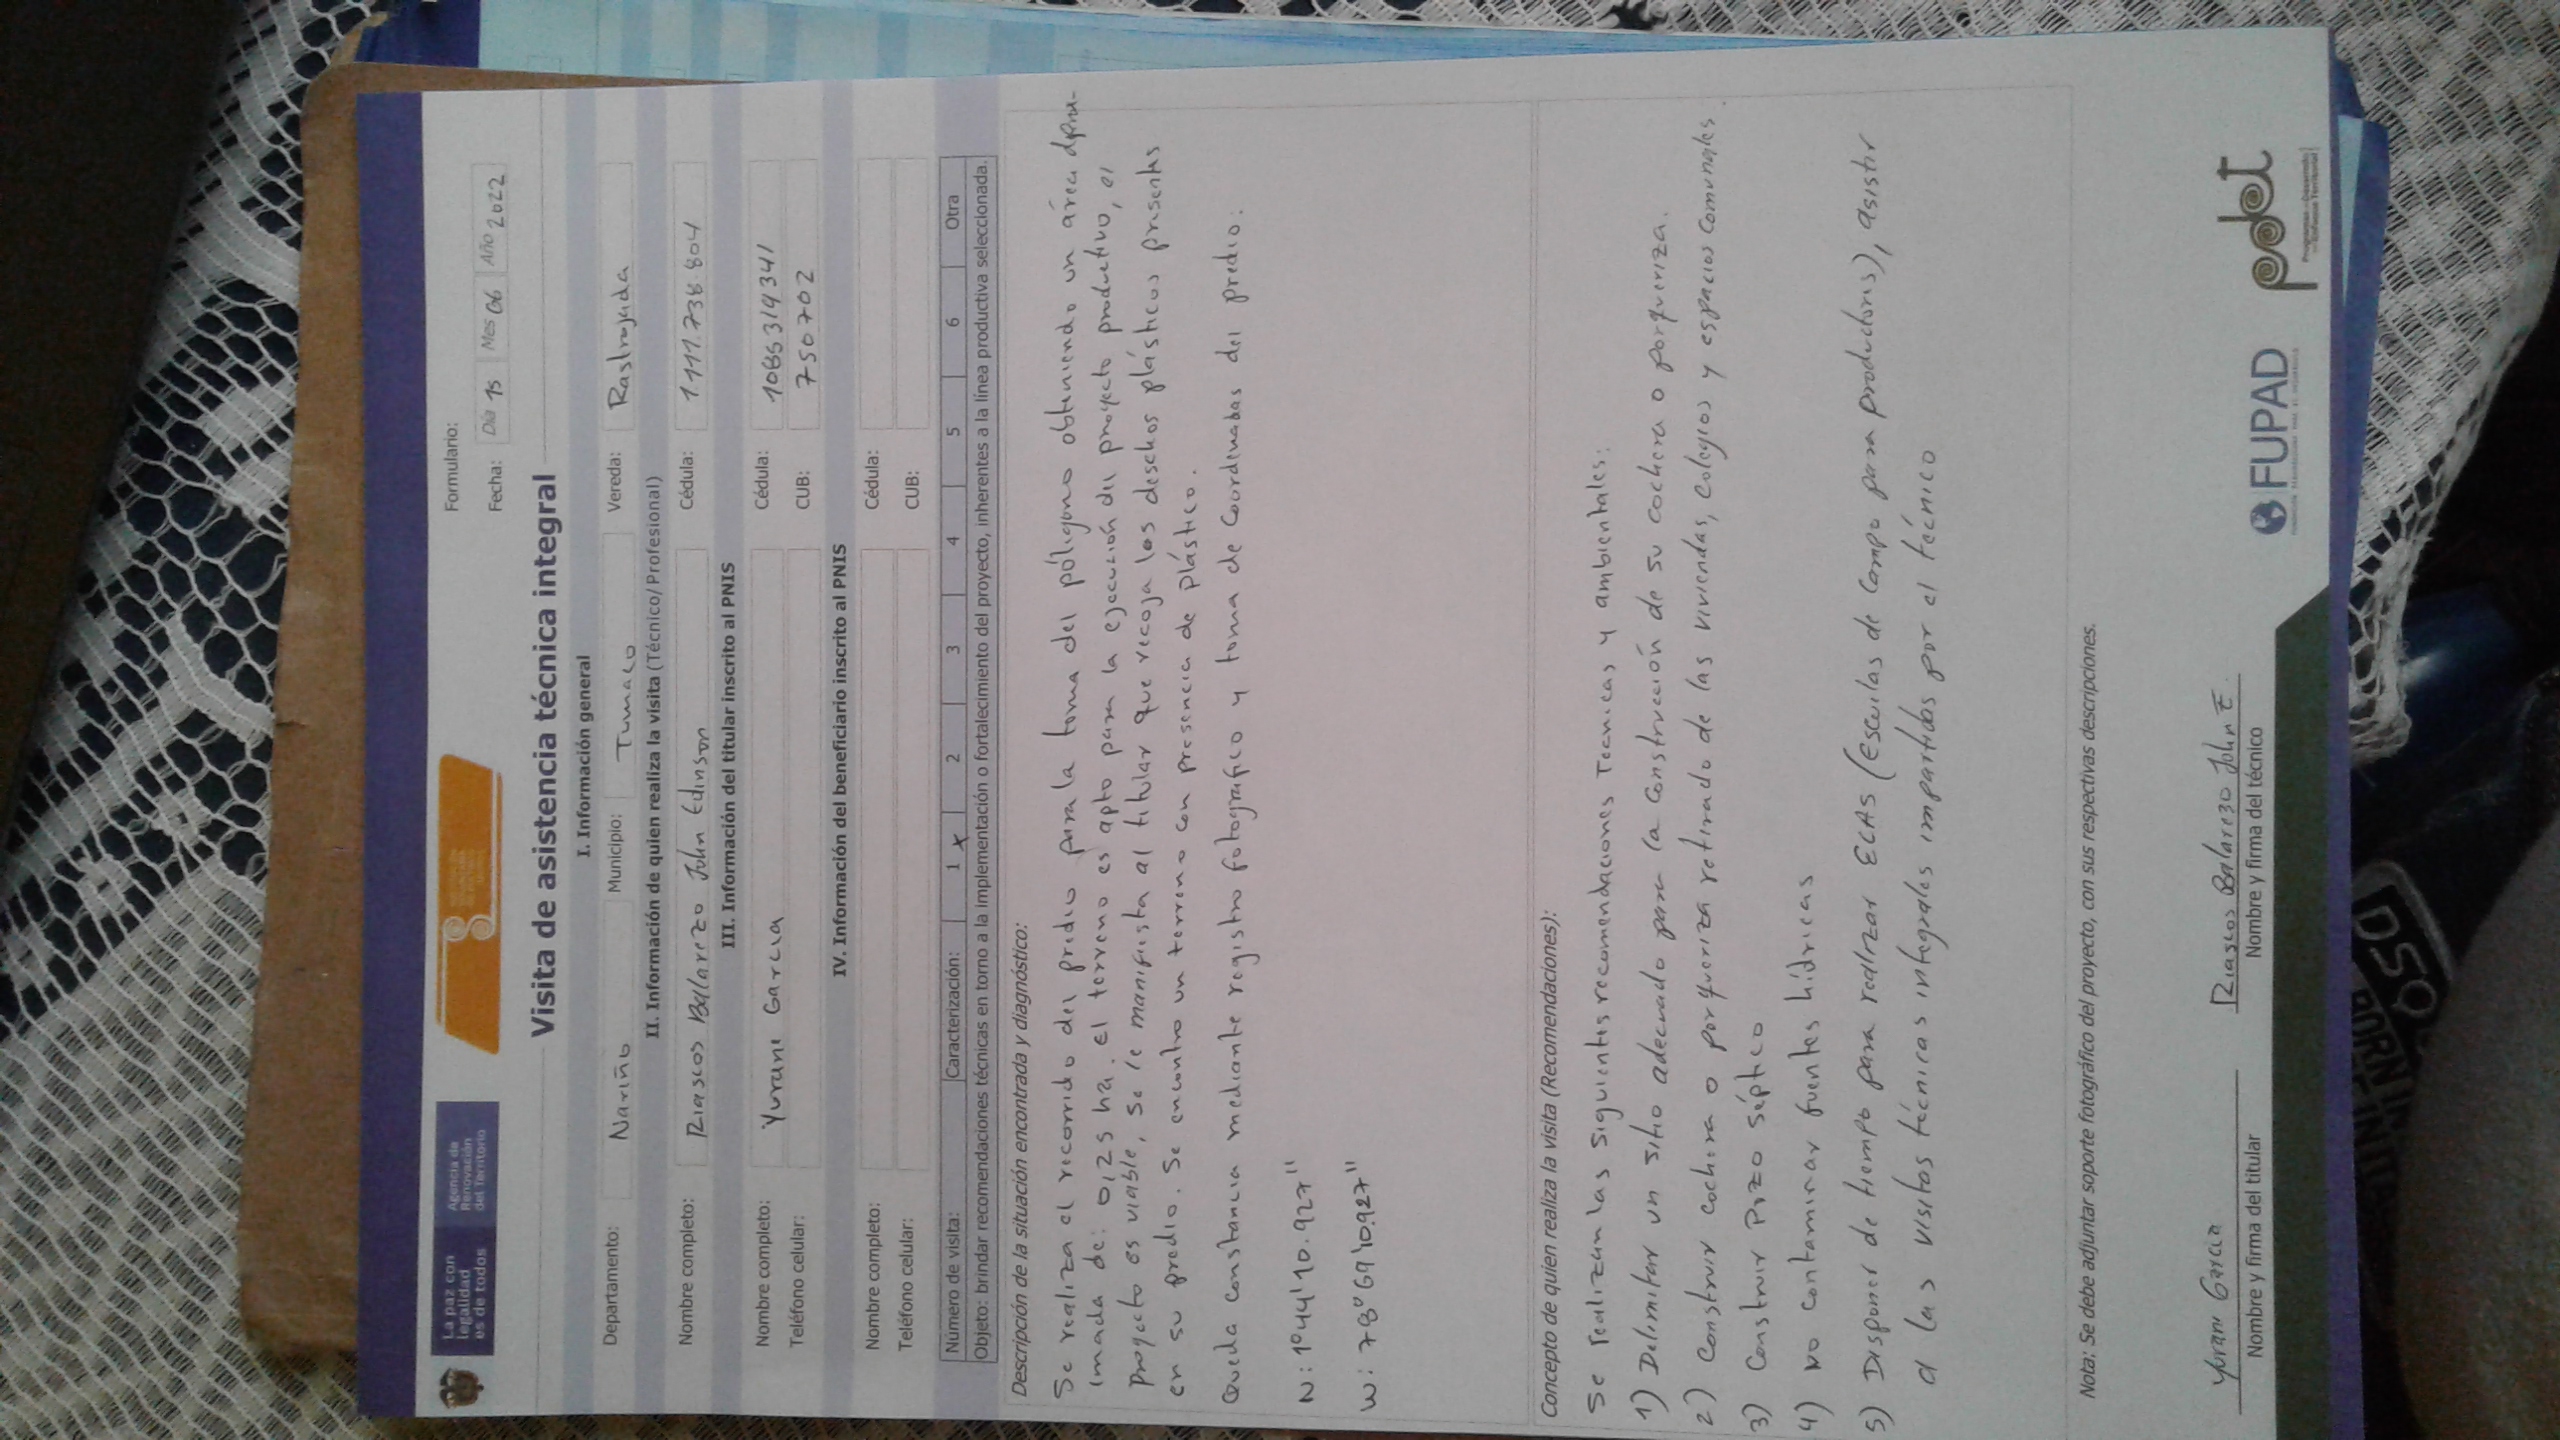 La paz con
legalidad
es de todos
Agencia de
Renovación
del Territorio
Formulario:
Fecha: Día 15 Mes 06 Año 2022
Visita de asistencia técnica integral
I. Información general
Departamento: Nariño Municipio: Tumaco Vereda: Rastrojada
II. Información de quien realiza la visita (Técnico/Profesional)
Nombre completo: Riascos Balarezo John Edinson Cédula: 1111.738.804
III. Información del titular inscrito al PNIS
Nombre completo: Yurani Garcia Cédula: 1085319341
Teléfono celular: CUB: 750702
IV. Información del beneficiario inscrito al PNIS
Nombre completo: Cédula:
Teléfono celular: CUB:
Número de visita: Caracterización: 1 x 2 3 4 5 6 Otra
Objeto: brindar recomendaciones técnicas en torno a la implementación o fortalecimiento del proyecto, inherentes a la línea productiva seleccionada.
Descripción de la situación encontrada y diagnóstico:
Se realiza el recorrido del predio para la toma del póligono obteniendo un área
imada de: 0,25 ha. el terreno es apto para la ejecución del proyecto productivo, el
proyecto es viable, se le manifiesta al titular que recoja los desechos plásticos presentes
en su predio. Se encontro un terreno con presencia de plástico.
Queda constancia mediante registro fotografico y toma de Coordenadas del predio:
N: 1°44'10.927"
W: 78°69'10.927"
Concepto de quien realiza la visita (Recomendaciones):
Se realizan las siguientes recomendaciones Tecnicas y ambientales:
1) Delimitar un sitio adecuado para la construcción de su cochera o porqueriza.
2) Construir cochera o porqueriza retirado de las viviendas, colegios y espacios comunales.
3) Construir Pozo séptico
4) No contaminar fuentes hídricas
5) Disponer de tiempo para realizar ECAS (escuelas de campo para productores), asistir
a las visitas técnicas integrales impartidas por el técnico
Nota: Se debe adjuntar soporte fotográfico del proyecto, con sus respectivas descripciones.
Yurani Garcia
Nombre y firma del titular
Riascos Balarezo John E.
Nombre y firma del técnico
FUPAD
pdet